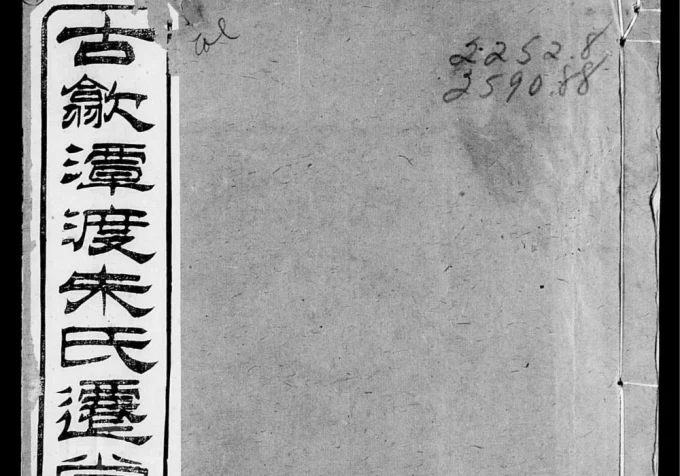 古歙潭渡朱氏遷
2252.8
2590.88